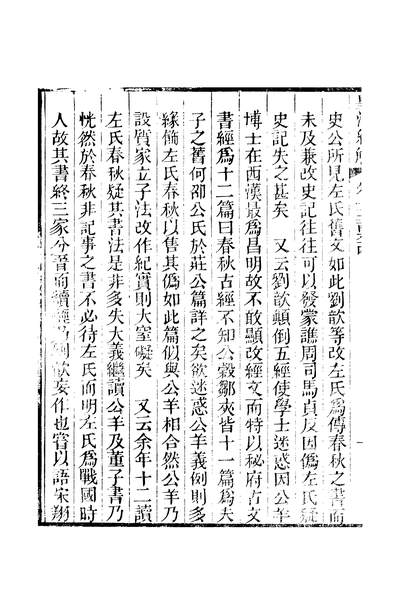 史公所見左氏舊文如此劉歆等改左氏爲傳春秋之書而
未及兼改史記往往可以發蒙譙周司馬貞反因僞左氏疑
史記失之甚矣　又云劉歆顛倒五經使學士迷惑因公羊
博士在西漢最爲昌明故不敢顯改經文而特以秘府古文
書經爲十二篇曰春秋古經不知公穀鄒夾皆十一篇爲夫
子之舊何邵公氏於莊公篇詳之矣欲迷惑公羊義例則多
緣飾左氏春秋以售其僞如此篇似與公羊相合然公羊乃
設質家立子法改作紀實則大窒礙矣　又云余年十二讀
左氏春秋疑其書法是非多失大義繼讀公羊及董子書乃
恍然於春秋非記事之書不必待左氏而明左氏爲戰國時
人故其書終三家分晉而續經乃劉歆妄作也嘗以語宋翔